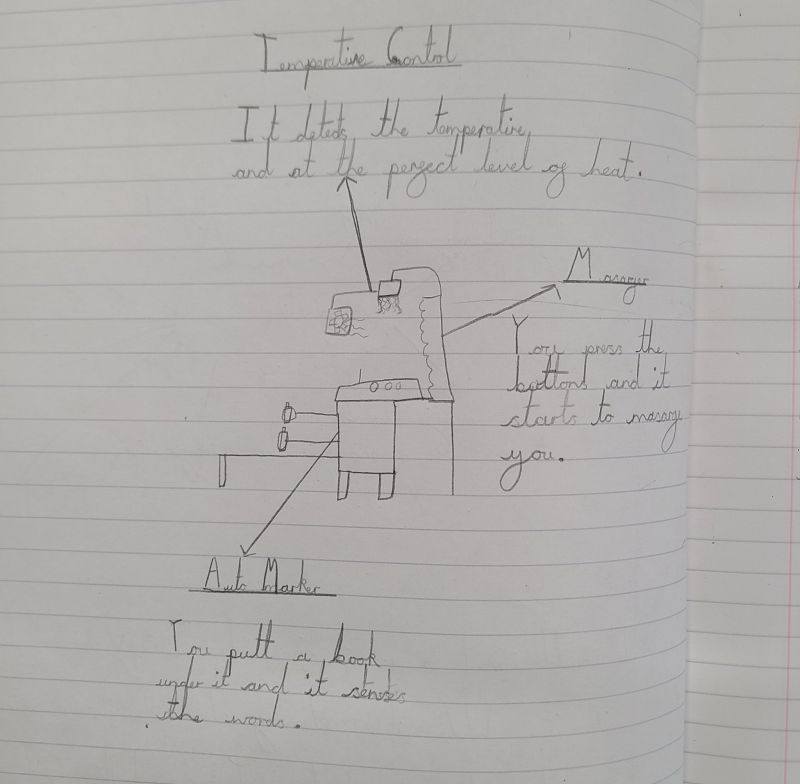 Temperative Control
It detects the temperative,
and at the perfect level of heat.
Masager
You press the
buttons and it
starts to masage
you.
Auto Marker
You putt a book
under it and it senses
the words.